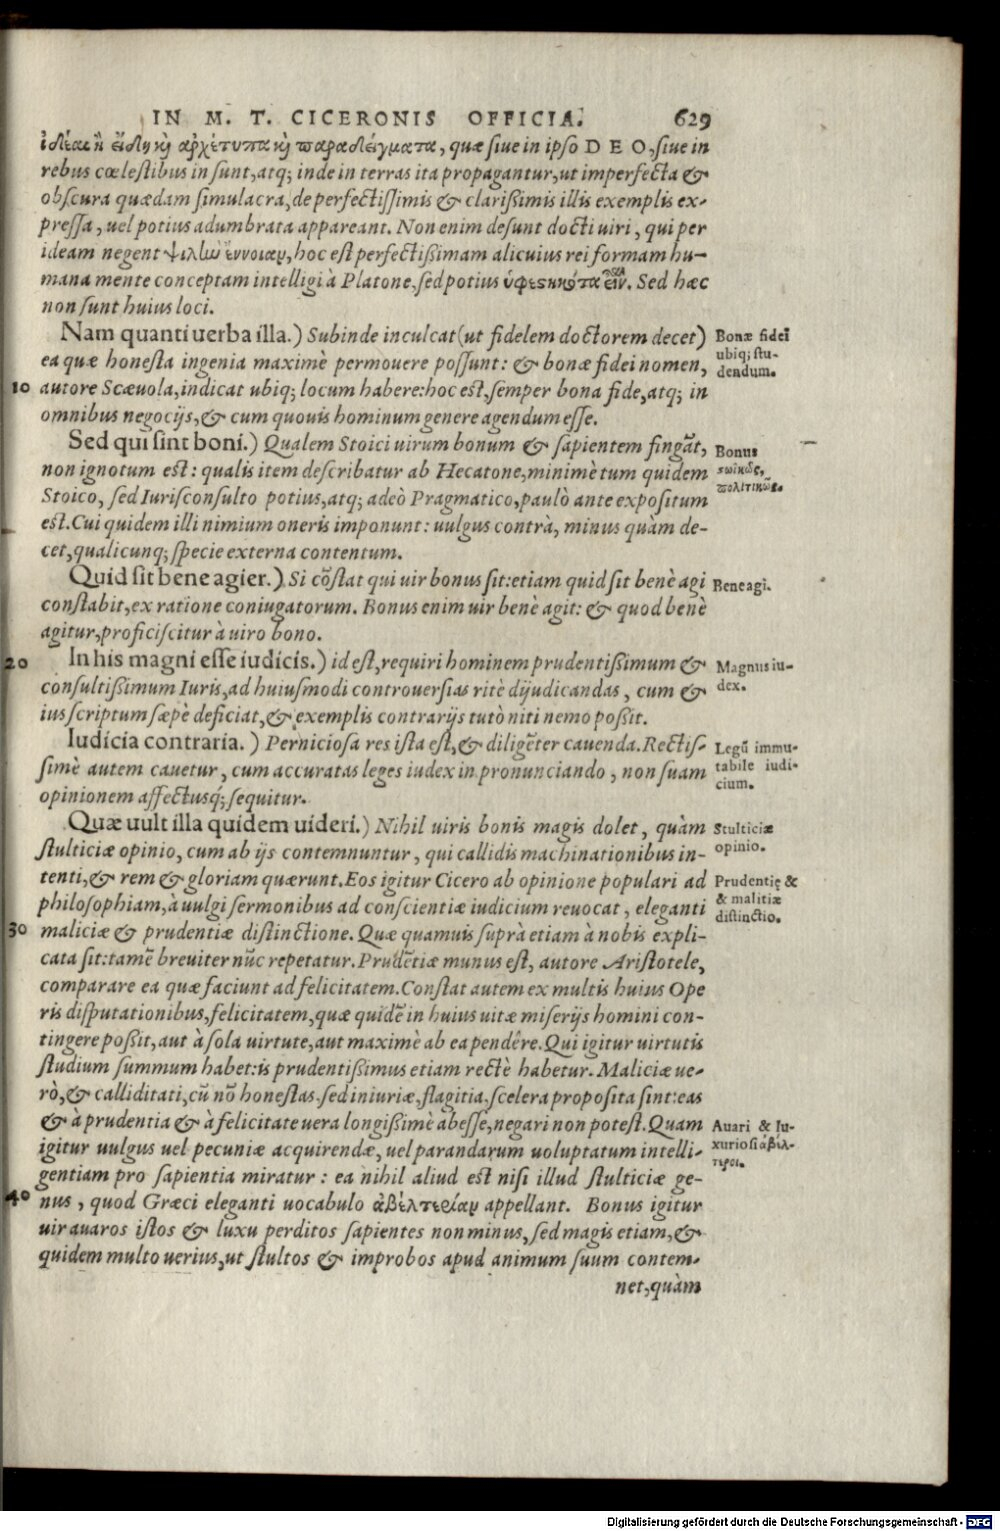 IN M. T. CICERONIS OFFICIA. 629
ἰδέαι ἢ εἴδη καὶ ἀρχέτυπα καὶ παραδείγματα, quæ ſiue in ipſo DEO, ſiue in
rebus cœleſtibus inſunt, atq; inde in terras ita propagantur, ut imperfecta &
obſcura quædam ſimulacra, de perfectiſſimis & clariſsimis illis exemplis ex-
preſſa, uel potius adumbrata appareant. Non enim deſunt docti uiri, qui per
ideam negent ψιλὴν ἔννοιαν, hoc eſt perfectiſsimam alicuius rei formam hu-
mana mente conceptam intelligi à Platone, ſed potius ὑφεστηκότα. Sed hæc
non ſunt huius loci.
Nam quanti uerba illa.) Subinde inculcat (ut fidelem doctorem decet) Bonæ fidei
ea quæ honeſta ingenia maximè permouere poſſunt: & bonæ fidei nomen, ubiq; ſtu-
dendum.
10 autore Scæuola, indicat ubiq; locum habere: hoc eſt, ſemper bona fide, atq; in
omnibus negocijs, & cum quouis hominum genere agendum eſſe.
Sed qui ſint boni.) Qualem Stoici uirum bonum & ſapientem fingāt, Bonus
non ignotum eſt: qualis item deſcribatur ab Hecatone, minimè tum quidem στωικῶς,
Stoico, ſed Iuriſconſulto potius, atq; adeò Pragmatico, paulò ante expoſitum πολιτικῶς.
eſt. Cui quidem illi nimium oneris imponunt: uulgus contrà, minus quàm de-
cet, qualicunq; ſpecie externa contentum.
Quid ſit bene agier.) Si cōſtat qui uir bonus ſit: etiam quid ſit benè agi Bene agi.
conſtabit, ex ratione coniugatorum. Bonus enim uir benè agit: & quod benè
agitur, proficiſcitur à uiro bono.
20 In his magni eſſe iudicis.) id eſt, requiri hominem prudentiſsimum & Magnus iu-
conſultiſsimum Iuris, ad huiuſmodi controuerſias ritè dijudicandas, cum & dex.
ius ſcriptum ſæpè deficiat, & exemplis contrarijs tutò niti nemo poſsit.
Iudicia contraria.) Pernicioſa res iſta eſt, & diligēter cauenda. Rectiſ- Legū immu-
ſimè autem cauetur, cum accuratas leges iudex in pronunciando, non ſuam tabile iudi-
cium.
opinionem affectusq́; ſequitur.
Quæ uult illa quidem uideri.) Nihil uiris bonis magis dolet, quàm Stulticiæ
ſtulticiæ opinio, cum ab ijs contemnuntur, qui callidis machinationibus in- opinio.
tenti, & rem & gloriam quærunt. Eos igitur Cicero ab opinione populari ad Prudentię &
philoſophiam, à uulgi ſermonibus ad conſcientiæ iudicium reuocat, eleganti & malitiæ
diſtinctio.
30 maliciæ & prudentiæ diſtinctione. Quæ quamuis ſuprà etiam à nobis expli-
cata ſit: tamē breuiter nūc repetatur. Prudētiæ munus eſt, autore Ariſtotele,
comparare ea quæ faciunt ad felicitatem. Conſtat autem ex multis huius Ope
ris diſputationibus, felicitatem, quæ quidē in huius uitæ miſerijs homini con-
tingere poſsit, aut à ſola uirtute, aut maximè ab ea pendêre. Qui igitur uirtutis
ſtudium ſummum habet: is prudentiſsimus etiam rectè habetur. Maliciæ ue-
rò, & calliditati, cū nō honeſtas, ſed iniuriæ, flagitia, ſcelera propoſita ſint: eas
& à prudentia & à felicitate uera longiſsimè abeſſe, negari non poteſt. Quam Auari & lu-
igitur uulgus uel pecuniæ acquirendæ, uel parandarum uoluptatum intelli- xurioſi ἀβέλ-
τεροι.
gentiam pro ſapientia miratur: ea nihil aliud eſt niſi illud ſtulticiæ ge-
40 nus, quod Græci eleganti uocabulo ἀβελτερίαν appellant. Bonus igitur
uir auaros iſtos & luxu perditos ſapientes non minus, ſed magis etiam, &
quidem multo uerius, ut ſtultos & improbos apud animum ſuum contem-
net, quàm
Digitalisierung gefördert durch die Deutsche Forschungsgemeinschaft - DFG